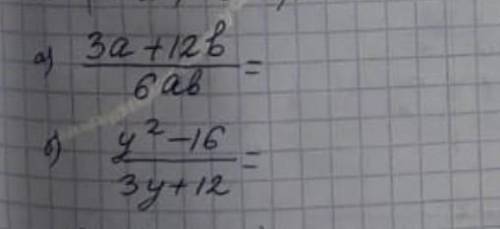 а) (3a + 12b)/(6ab) =
б) (y² - 16)/(3y + 12) =